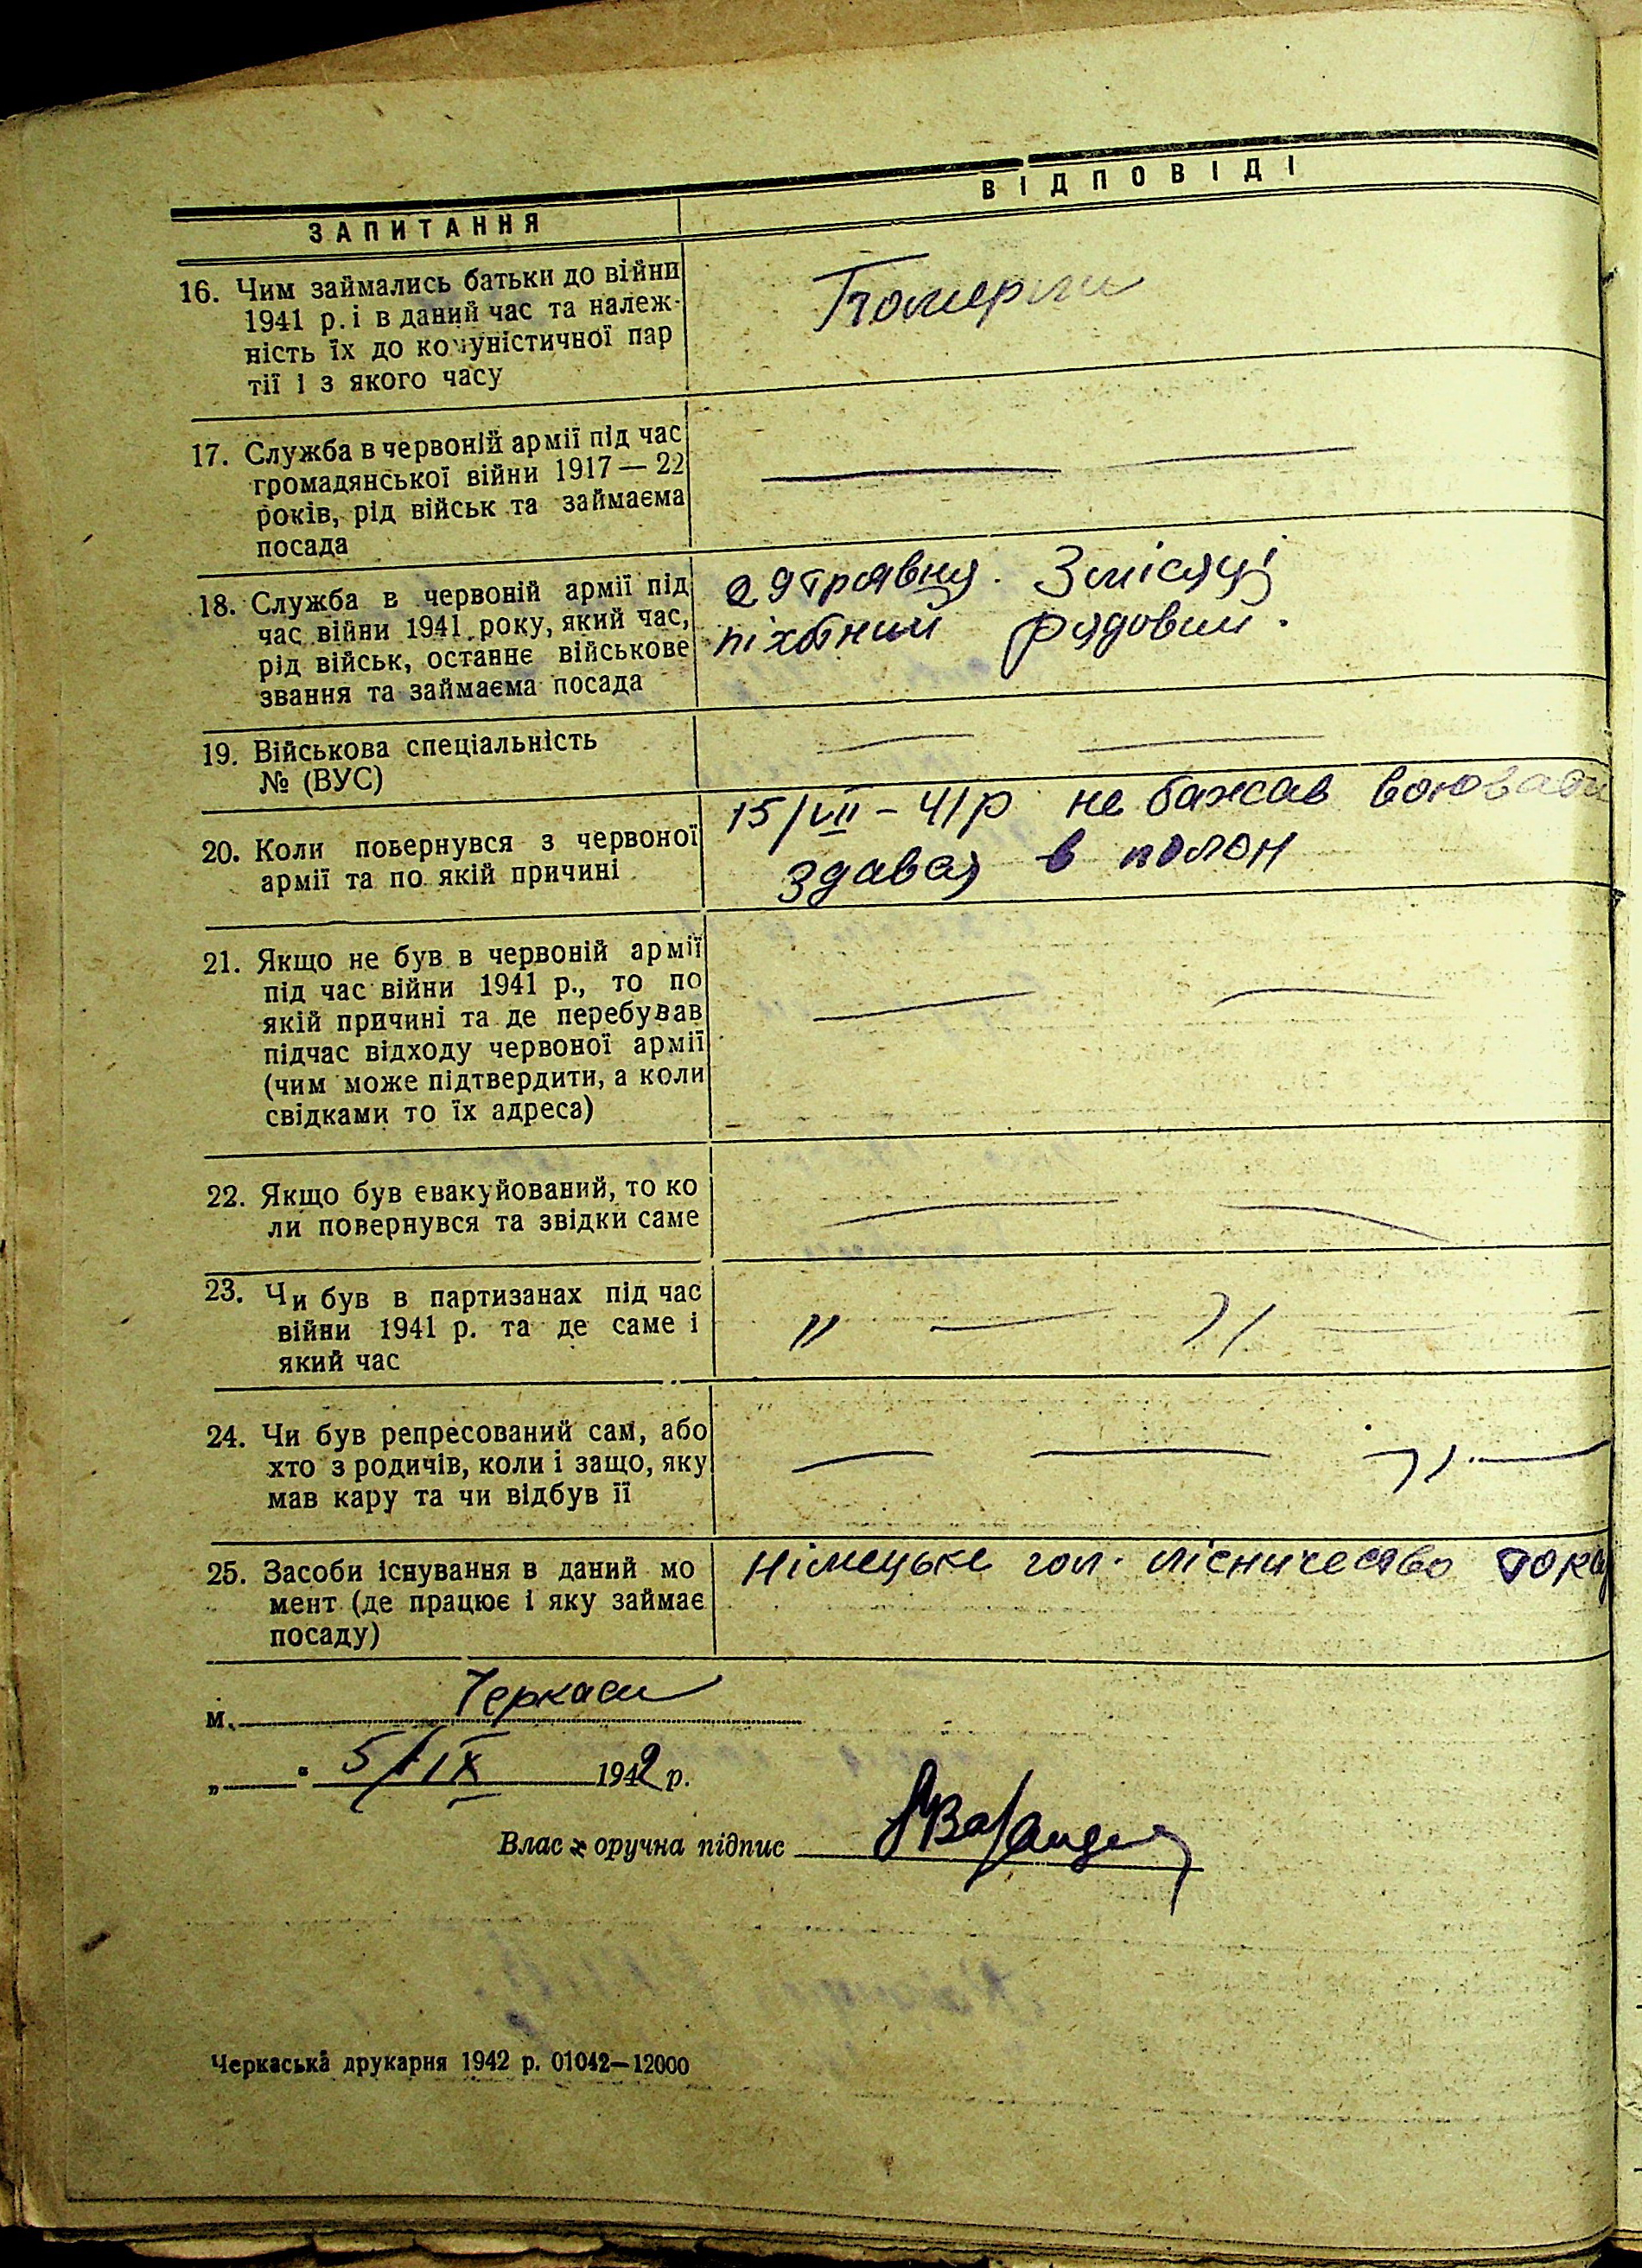 ЗАПИТАННЯ
ВІДПОВІДІ
16. Чим займались батьки до війни
1941 р. і в даний час та належ-
ність їх до комуністичної пар
тії і з якого часу
Померли
17. Служба в червоній армії під час
громадянської війни 1917 — 22
років, рід військ та займаєма
посада
18. Служба в червоній армії під
час війни 1941 року, який час,
рід військ, останнє військове
звання та займаєма посада
29 травня. 3 місяці
піхотний рядовий.
19. Військова спеціальність
№ (ВУС)
20. Коли повернувся з червоної
армії та по якій причині
15/VII – 41 р не бажав воювати
здався в полон
21. Якщо не був в червоній армії
під час війни 1941 р., то по
якій причині та де перебував
підчас відходу червоної армії
(чим може підтвердити, а коли
свідками то їх адреса)
22. Якщо був евакуйований, то ко
ли повернувся та звідки саме
23. Чи був в партизанах під час
війни 1941 р. та де саме і
який час
" — " —
24. Чи був репресований сам, або
хто з родичів, коли і защо, яку
мав кару та чи відбув її
— — " —
25. Засоби існування в даний мо
мент (де працює і яку займає
посаду)
Німецьке гол. лісничество
м. Черкаси
„ — " 5/IX 1942 р.
Власноручна підпис
Черкаська друкарня 1942 р. 01042—12000